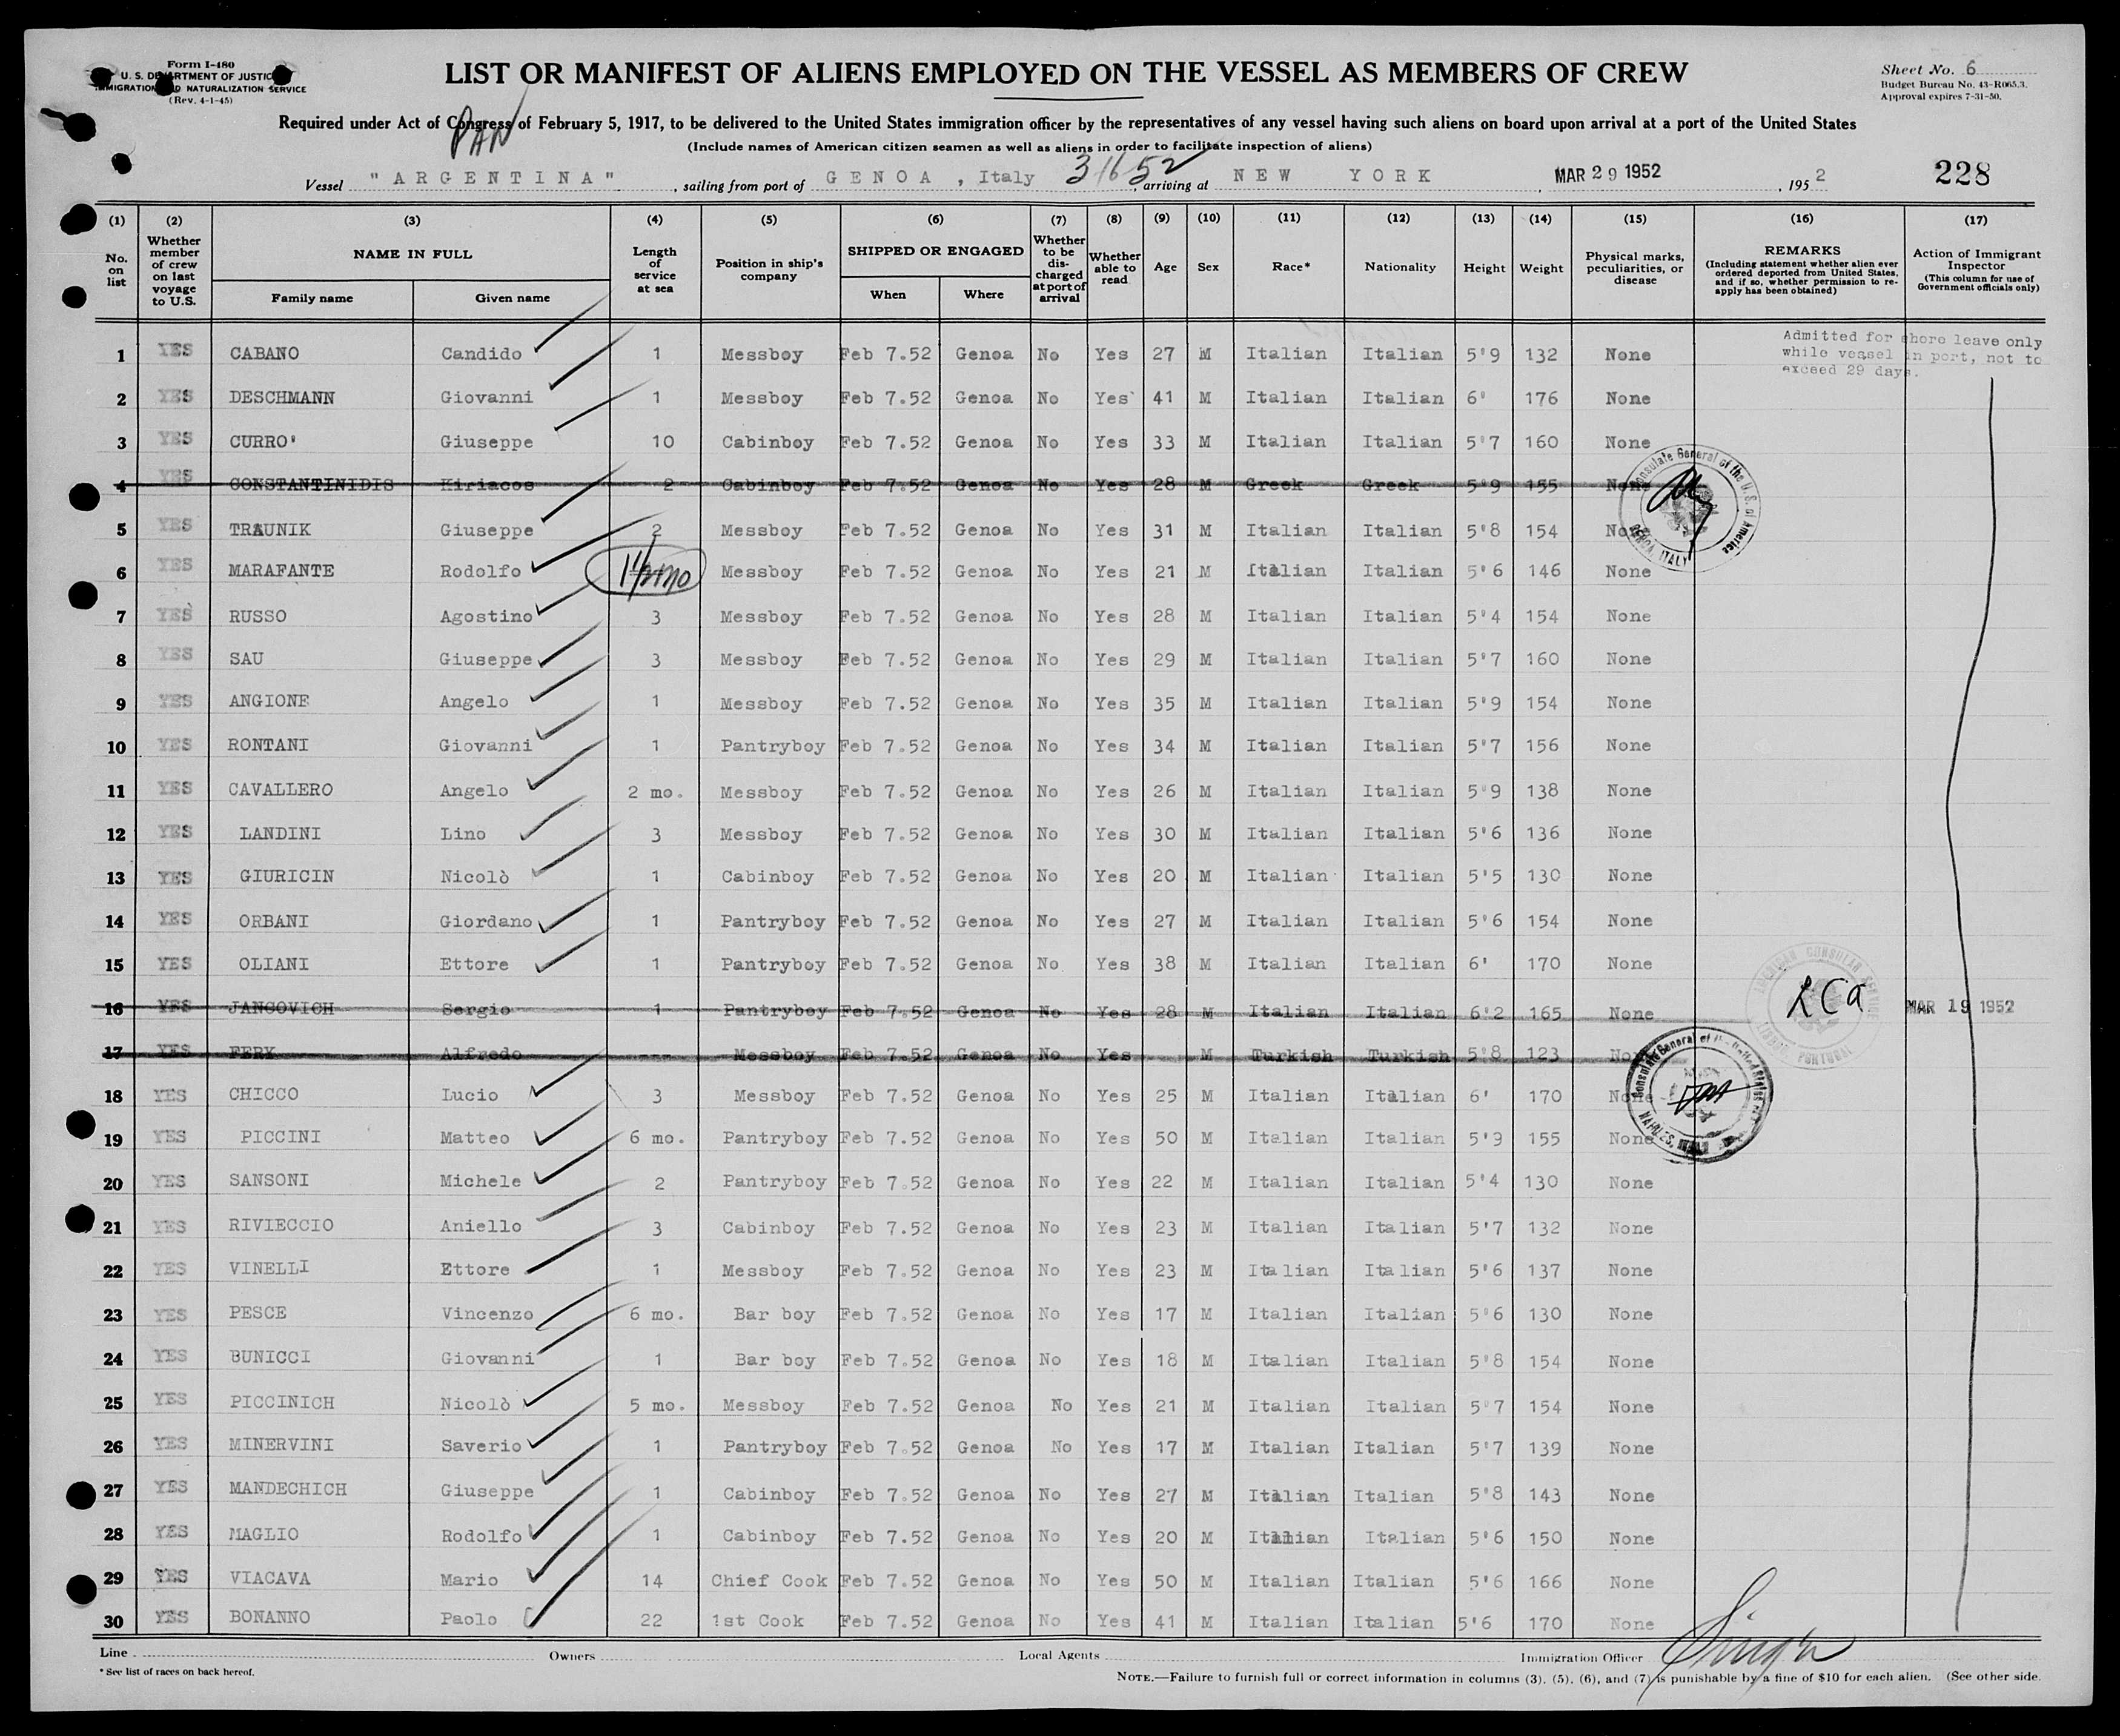 Form I-480
U. S. DEPARTMENT OF JUSTICE
IMMIGRATION AND NATURALIZATION SERVICE
(Rev. 4-1-45)
LIST OR MANIFEST OF ALIENS EMPLOYED ON THE VESSEL AS MEMBERS OF CREW
Sheet No. 6
Budget Bureau No. 43-R065.3.
Approval expires 7-31-50.
Required under Act of Congress of February 5, 1917, to be delivered to the United States immigration officer by the representatives of any vessel having such aliens on board upon arrival at a port of the United States
PAN
(Include names of American citizen seamen as well as aliens in order to facilitate inspection of aliens)
Vessel "ARGENTINA", sailing from port of GENOA, Italy 3/16/52, arriving at NEW YORK, MAR 29 1952, 1952
228
(1) (2) (3) (4) (5) (6) (7) (8) (9) (10) (11) (12) (13) (14) (15) (16) (17)
No. on list
Whether member of crew on last voyage to U.S.
NAME IN FULL
Family name
Given name
Length of service at sea
Position in ship's company
SHIPPED OR ENGAGED
When
Where
Whether to be discharged at port of arrival
Whether able to read
Age
Sex
Race*
Nationality
Height
Weight
Physical marks, peculiarities, or disease
REMARKS
(Including statement whether alien ever ordered deported from United States, and if so, whether permission to reapply has been obtained)
Action of Immigrant Inspector
(This column for use of Government officials only)
Admitted for shore leave only
while vessel in port, not to
exceed 29 days.
1 YES CABANO Candido 1 Messboy Feb 7.52 Genoa No Yes 27 M Italian Italian 5'9 132 None
2 YES DESCHMANN Giovanni 1 Messboy Feb 7.52 Genoa No Yes 41 M Italian Italian 6' 176 None
3 YES CURRO' Giuseppe 10 Cabinboy Feb 7.52 Genoa No Yes 33 M Italian Italian 5'7 160 None
4 YES CONSTANTINIDIS Kiriacos 2 Cabinboy Feb 7.52 Genoa No Yes 28 M Greek Greek 5'9 155 None
5 YES TRAUNIK Giuseppe 2 Messboy Feb 7.52 Genoa No Yes 31 M Italian Italian 5'8 154 None
6 YES MARAFANTE Rodolfo Messboy Feb 7.52 Genoa No Yes 21 M Italian Italian 5'6 146 None
7 YES RUSSO Agostino 3 Messboy Feb 7.52 Genoa No Yes 28 M Italian Italian 5'4 154 None
8 YES SAU Giuseppe 3 Messboy Feb 7.52 Genoa No Yes 29 M Italian Italian 5'7 160 None
9 YES ANGIONE Angelo 1 Messboy Feb 7.52 Genoa No Yes 35 M Italian Italian 5'9 154 None
10 YES RONTANI Giovanni 1 Pantryboy Feb 7.52 Genoa No Yes 34 M Italian Italian 5'7 156 None
11 YES CAVALLERO Angelo 2 mo. Messboy Feb 7.52 Genoa No Yes 26 M Italian Italian 5'9 138 None
12 YES LANDINI Lino 3 Messboy Feb 7.52 Genoa No Yes 30 M Italian Italian 5'6 136 None
13 YES GIURICIN Nicolò 1 Cabinboy Feb 7.52 Genoa No Yes 20 M Italian Italian 5'5 130 None
14 YES ORBANI Giordano 1 Pantryboy Feb 7.52 Genoa No Yes 27 M Italian Italian 5'6 154 None
15 YES OLIANI Ettore 1 Pantryboy Feb 7.52 Genoa No Yes 38 M Italian Italian 6' 170 None
16 YES JANCOVICH Sergio 1 Pantryboy Feb 7.52 Genoa No Yes 28 M Italian Italian 6'2 165 None MAR 19 1952
17 YES FERY Alfredo --- Messboy Feb 7.52 Genoa No Yes M Turkish Turkish 5'8 123 None
18 YES CHICCO Lucio 3 Messboy Feb 7.52 Genoa No Yes 25 M Italian Italian 6' 170 None
19 YES PICCINI Matteo 6 mo. Pantryboy Feb 7.52 Genoa No Yes 50 M Italian Italian 5'9 155 None
20 YES SANSONI Michele 2 Pantryboy Feb 7.52 Genoa No Yes 22 M Italian Italian 5'4 130 None
21 YES RIVIECCIO Aniello 3 Cabinboy Feb 7.52 Genoa No Yes 23 M Italian Italian 5'7 132 None
22 YES VINELLI Ettore 1 Messboy Feb 7.52 Genoa No Yes 23 M Italian Italian 5'6 137 None
23 YES PESCE Vincenzo 6 mo. Bar boy Feb 7.52 Genoa No Yes 17 M Italian Italian 5'6 130 None
24 YES BUNICCI Giovanni 1 Bar boy Feb 7.52 Genoa No Yes 18 M Italian Italian 5'8 154 None
25 YES PICCINICH Nicolò 5 mo. Messboy Feb 7.52 Genoa No Yes 21 M Italian Italian 5'7 154 None
26 YES MINERVINI Saverio 1 Pantryboy Feb 7.52 Genoa No Yes 17 M Italian Italian 5'7 139 None
27 YES MANDECHICH Giuseppe 1 Cabinboy Feb 7.52 Genoa No Yes 27 M Italian Italian 5'8 143 None
28 YES MAGLIO Rodolfo 1 Cabinboy Feb 7.52 Genoa No Yes 20 M Italian Italian 5'6 150 None
29 YES VIACAVA Mario 14 Chief Cook Feb 7.52 Genoa No Yes 50 M Italian Italian 5'6 166 None
30 YES BONANNO Paolo 22 1st Cook Feb 7.52 Genoa No Yes 41 M Italian Italian 5'6 170 None
Consulate General of the U.S. of America GENOA, ITALY
AMERICAN CONSULAR SERVICE LISBON, PORTUGAL
Consulate General of the United States NAPLES,
Line Owners Local Agents Immigration Officer
* See list of races on back hereof.
NOTE.—Failure to furnish full or correct information in columns (3), (5), (6), and (7) is punishable by a fine of $10 for each alien. (See other side.